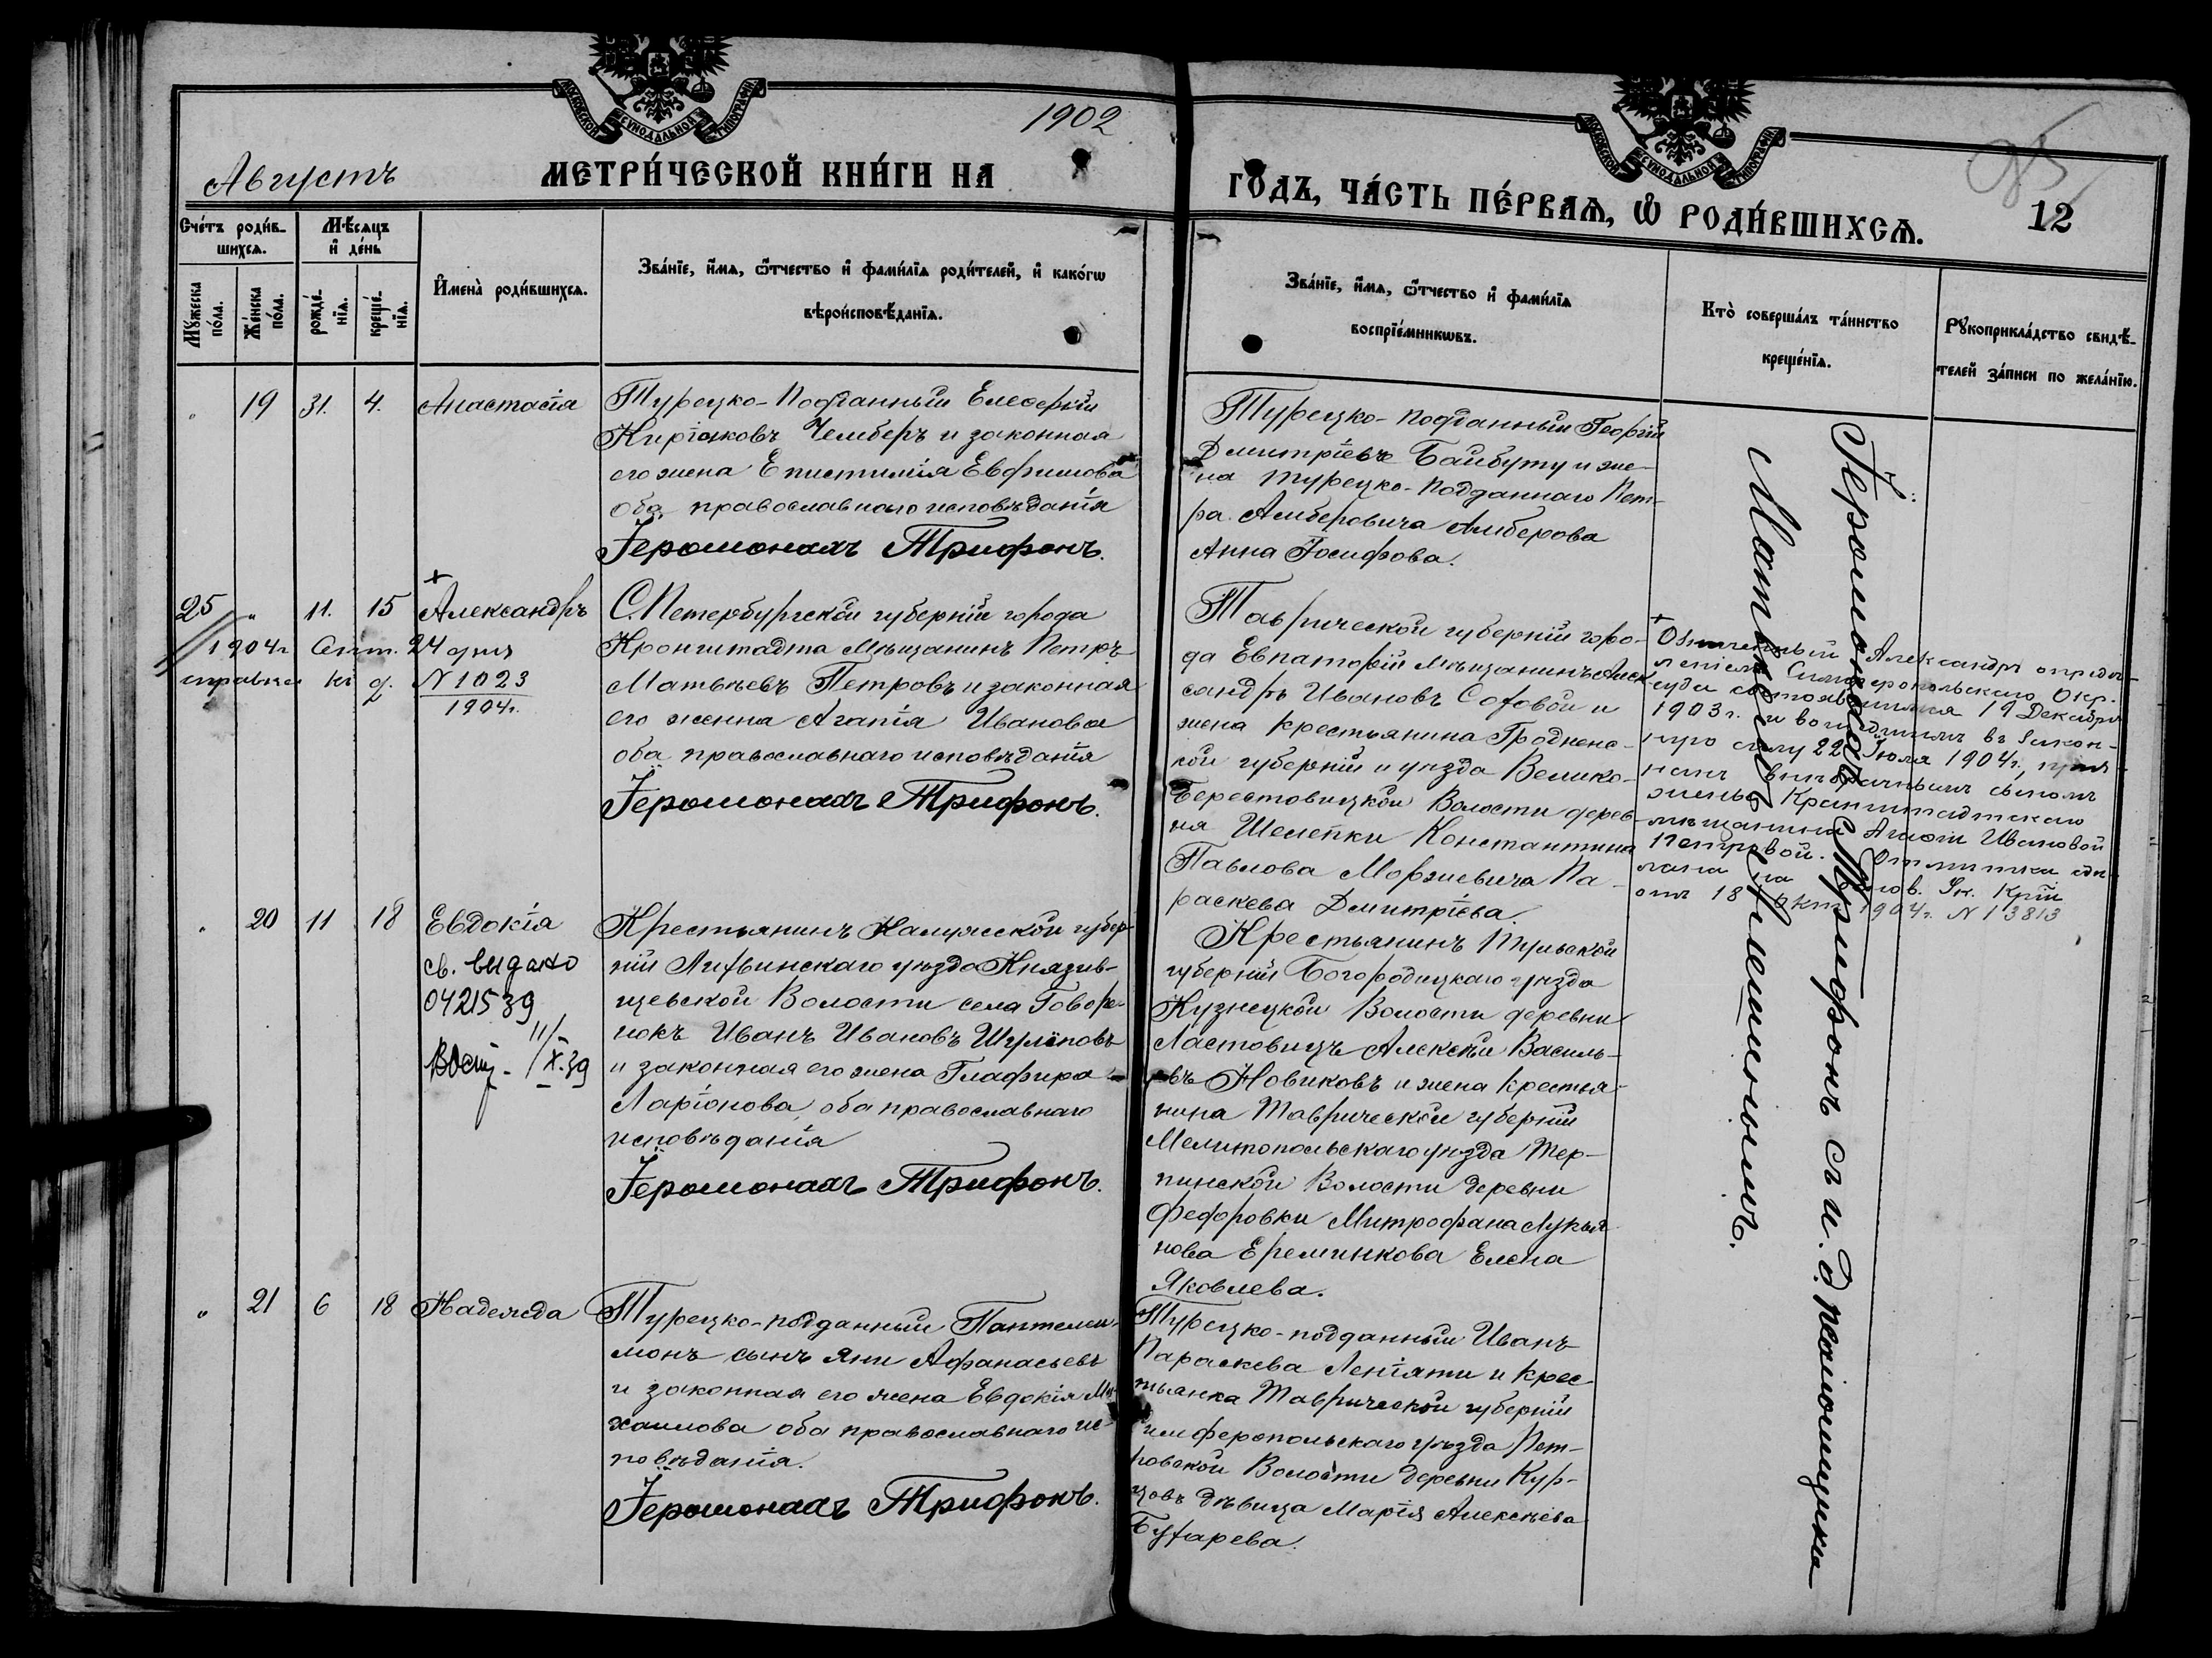 1902
Августъ
МЕТРИ́ЧЕСКОЙ КНИ́ГИ НА
ГО́ДЪ, ЧА́СТЬ ПЕ́РВАѦ, Ѡ҆ РОДИ́ВШИХСѦ.
95
12
МОСКОВСКОЙ СѴНОДАЛЬНОЙ ТИПОГРАФІИ
МОСКОВСКОЙ СѴНОДАЛЬНОЙ ТИПОГРАФІИ
Сче́тъ роди́в-
шихсѧ.
Мꙋ́жеска по́ла.
Же́нска по́ла.
Мѣ́сѧцъ
и҆ де́нь
рожде́-
нїѧ.
креще́-
нїѧ.
И҆мена̀ роди́вшихсѧ.
Зва́нїе, и҆́мѧ, ѻ҆́тчество и҆ фамѝлїѧ роди́телей, и҆ како́гѡ
вѣроисповѣ́данїѧ.
Зва́нїе, и҆́мѧ, ѻ҆́тчество и҆ фами́лїѧ
воспрїе́мникѡвъ.
Кто̀ соверша́лъ та́инство
креще́нїѧ.
Рꙋкоприкла́дство свидѣ́-
телей за́писи по жела́нїю.
" 19 31. 4. Анастасія
Турецко-Подданный Елеферій
Киріаковъ Челберъ и законная
его жена Епистимія Евфимова
оба православнаго исповѣданія
Іеромонахъ Трифонъ.
Турецко-подданный Георгій
Дмитріевъ Байбуту и же-
на турецко-подданнаго Пет-
ра Амберовича Амберова
Анна Іосифова.
25 " 11. 15 Александръ
1904 г. Сент. 24 дня
справка къ д. N 1023
1904 г.
С.Петербургской губерніи города
Кронштадта мѣщанинъ Петръ
Матвѣевъ Петровъ и законная
его женна Агапія Иванова
оба православнаго исповѣданія
Іеромонахъ Трифонъ.
Таврической губерніи горо-
да Евпаторіи мѣщанинъ Алек-
сандръ Ивановъ Софовой и
жена крестьянина Гродненс-
кой губерніи и уѣзда Велико-
Берестовицкой Волости дерев-
ня Шелепки Константина
Павлова Моржевича Па-
раскева Дмитріева.
Означенный Александръ опредѣ-
леніемъ Симферопольскаго Окр.
суда состоявшимся 19 Декабря
1903 г. и вошедшимъ въ закон-
ную силу 22 Іюля 1904 г., приз-
нанъ внѣбрачнымъ сыномъ
жены Кронштадтскаго
мѣщанина Агапіи Ивановой
Петровой. Отмѣтка
18 окт. 1904 г. N 13813
" 20 11 18 Евдокія
св. видано
0421539
11/X.39
Крестьянинъ Калужской губер-
ніи Лихвинскаго уѣзда Князив-
щевской Волости села Говоре-
нокъ Иванъ Ивановъ Шулиповъ
и законная его жена Глафира
Ларіонова, оба православнаго
исповѣданія
Іеромонахъ Трифонъ.
Крестьянинъ Тульской
губерніи Богородицкаго уѣзда
Кузнецкой Волости деревни
Ластовицъ Алексѣй Василь-
евъ Новиковъ и жена крестья-
нина Таврической губерніи
Мелитопольскаго уѣзда Тер-
пинской Волости деревни
Федоровки Митрофана Лукья-
нова Ереминкова Елена
Яковлева.
" 21 6 18 Надежда
Турецко-подданный Пантелей-
монъ сынъ Яни Афанасьевъ
и законная его жена Евдокія Ми-
хаилова оба православнаго ис-
повѣданія.
Іеромонахъ Трифонъ.
Турецко-подданный Иванъ
Параскева Леніяти и крес-
тьянка Таврической губерніи
Симферопольскаго уѣзда Пет-
ровской Волости деревни Кур-
цовъ дѣвица Марія Алексѣева
Бухарева.
Іеромонахъ Трифонъ съ и. д. псаломщика
Матвѣемъ Алешинымъ.